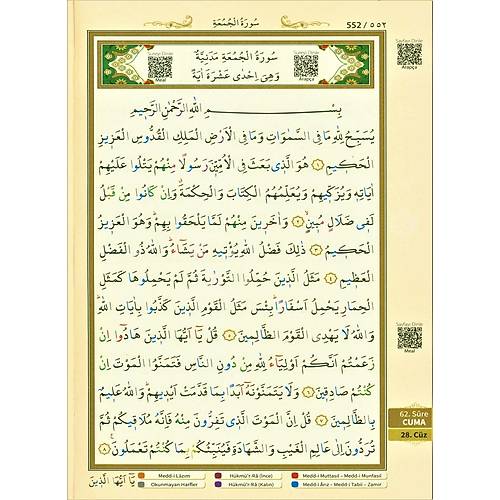 سُورَةُ الْجُمُعَةِ
552 / ٥٥٢
Sayfayı Dinle
Arapça
Sureyi Dinle
Meal
سُورَةُ الْجُمُعَةِ مَدَنِيَّةٌ
وَهِيَ اِحْدٰى عَشْرَةَ اٰيَةً
Sureyi Dinle
Arapça
بِسْمِ اللّٰهِ الرَّحْمٰنِ الرَّحٖيمِ
يُسَبِّحُ لِلّٰهِ مَا فِي السَّمٰوَاتِ وَمَا فِي الْاَرْضِ الْمَلِكِ الْقُدُّوسِ الْعَزٖيزِ
الْحَكٖيمِ ﴿١﴾ هُوَ الَّذٖي بَعَثَ فِي الْاُمِّيّٖنَ رَسُولًا مِنْهُمْ يَتْلُوا عَلَيْهِمْ
اٰيَاتِهٖ وَيُزَكّٖيهِمْ وَيُعَلِّمُهُمُ الْكِتَابَ وَالْحِكْمَةَۗ وَاِنْ كَانُوا مِنْ قَبْلُ
لَفٖي ضَلَالٍ مُبٖينٍۙ ﴿٢﴾ وَاٰخَرٖينَ مِنْهُمْ لَمَّا يَلْحَقُوا بِهِمْۜ وَهُوَ الْعَزٖيزُ
الْحَكٖيمُ ﴿٣﴾ ذٰلِكَ فَضْلُ اللّٰهِ يُؤْتٖيهِ مَنْ يَشَٓاءُۜ وَاللّٰهُ ذُو الْفَضْلِ
الْعَظٖيمِ ﴿٤﴾ مَثَلُ الَّذٖينَ حُمِّلُوا التَّوْرٰيةَ ثُمَّ لَمْ يَحْمِلُوهَا كَمَثَلِ
الْحِمَارِ يَحْمِلُ اَسْفَارًاۜ بِئْسَ مَثَلُ الْقَوْمِ الَّذٖينَ كَذَّبُوا بِاٰيَاتِ اللّٰهِۜ
وَاللّٰهُ لَا يَهْدِي الْقَوْمَ الظَّالِمٖينَ ﴿٥﴾ قُلْ يَٓا اَيُّهَا الَّذٖينَ هَادُٓوا اِنْ
زَعَمْتُمْ اَنَّكُمْ اَوْلِيَٓاءُ لِلّٰهِ مِنْ دُونِ النَّاسِ فَتَمَنَّوُا الْمَوْتَ اِنْ
كُنْتُمْ صَادِقٖينَ ﴿٦﴾ وَلَا يَتَمَنَّوْنَهُٓ اَبَدًا بِمَا قَدَّمَتْ اَيْدٖيهِمْۜ وَاللّٰهُ عَلٖيمٌ
بِالظَّالِمٖينَ ﴿٧﴾ قُلْ اِنَّ الْمَوْتَ الَّذٖي تَفِرُّونَ مِنْهُ فَاِنَّهُ مُلَاقٖيكُمْ ثُمَّ
تُرَدُّونَ اِلٰى عَالِمِ الْغَيْبِ وَالشَّهَادَةِ فَيُنَبِّئُكُمْ بِمَا كُنْتُمْ تَعْمَلُونَ ﴿٨﴾
Sayfayı Dinle
Meal
62. Sûre
CUMA
28. Cüz
يَٓا اَيُّهَا الَّذٖينَ
Medd-i Lâzım
Hükmü'r Râ (İnce)
Medd-i Muttasil – Medd-i Munfasil
Okunmayan Harfler
Hükmü'r Râ (Kalın)
Medd-i Ârız – Medd-i Tabii – Zamir